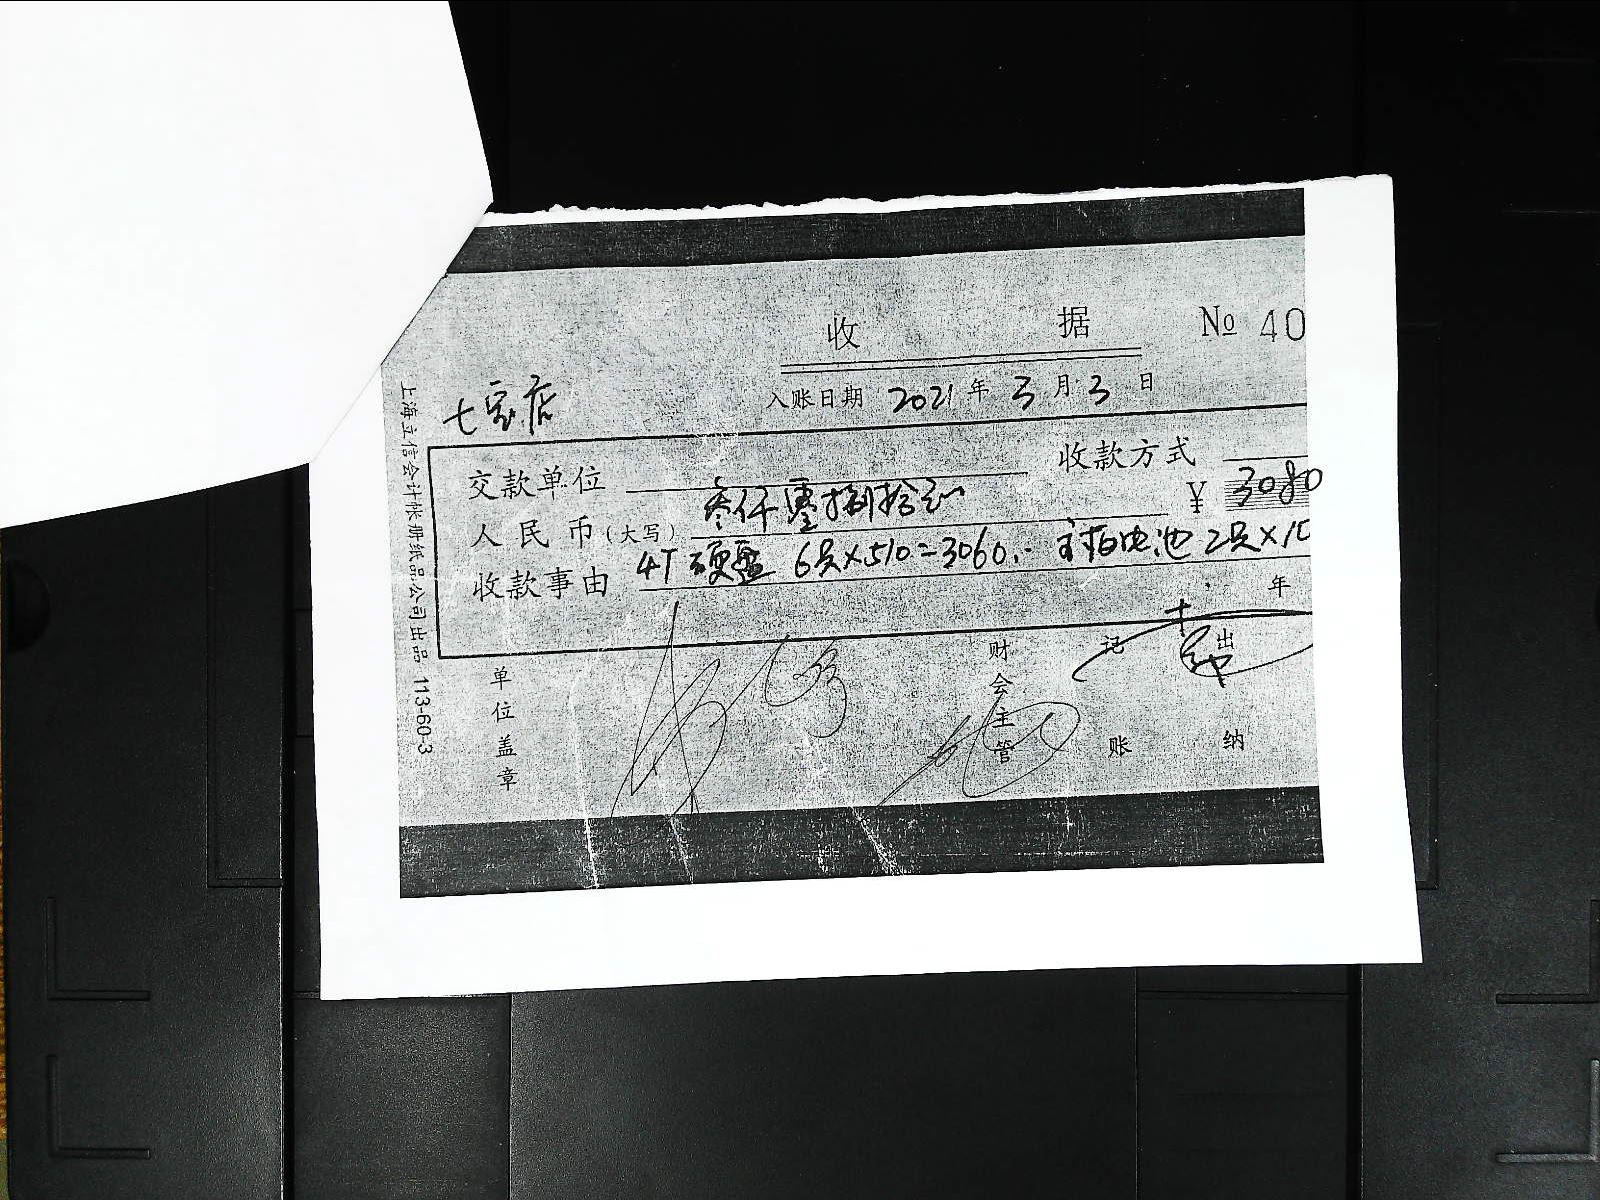 收 据 № 40
七宝店
入账日期 2021 年 3 月 3 日
交款单位 收款方式
人民币(大写) 叁仟零捌拾元 ¥ 3080
收款事由 4T硬盘 6只×510=3060.- 主板电池 2只×10
年
单位盖章 财会主管 记账 出纳
上海立信会计帐册纸品公司出品 113-60-3